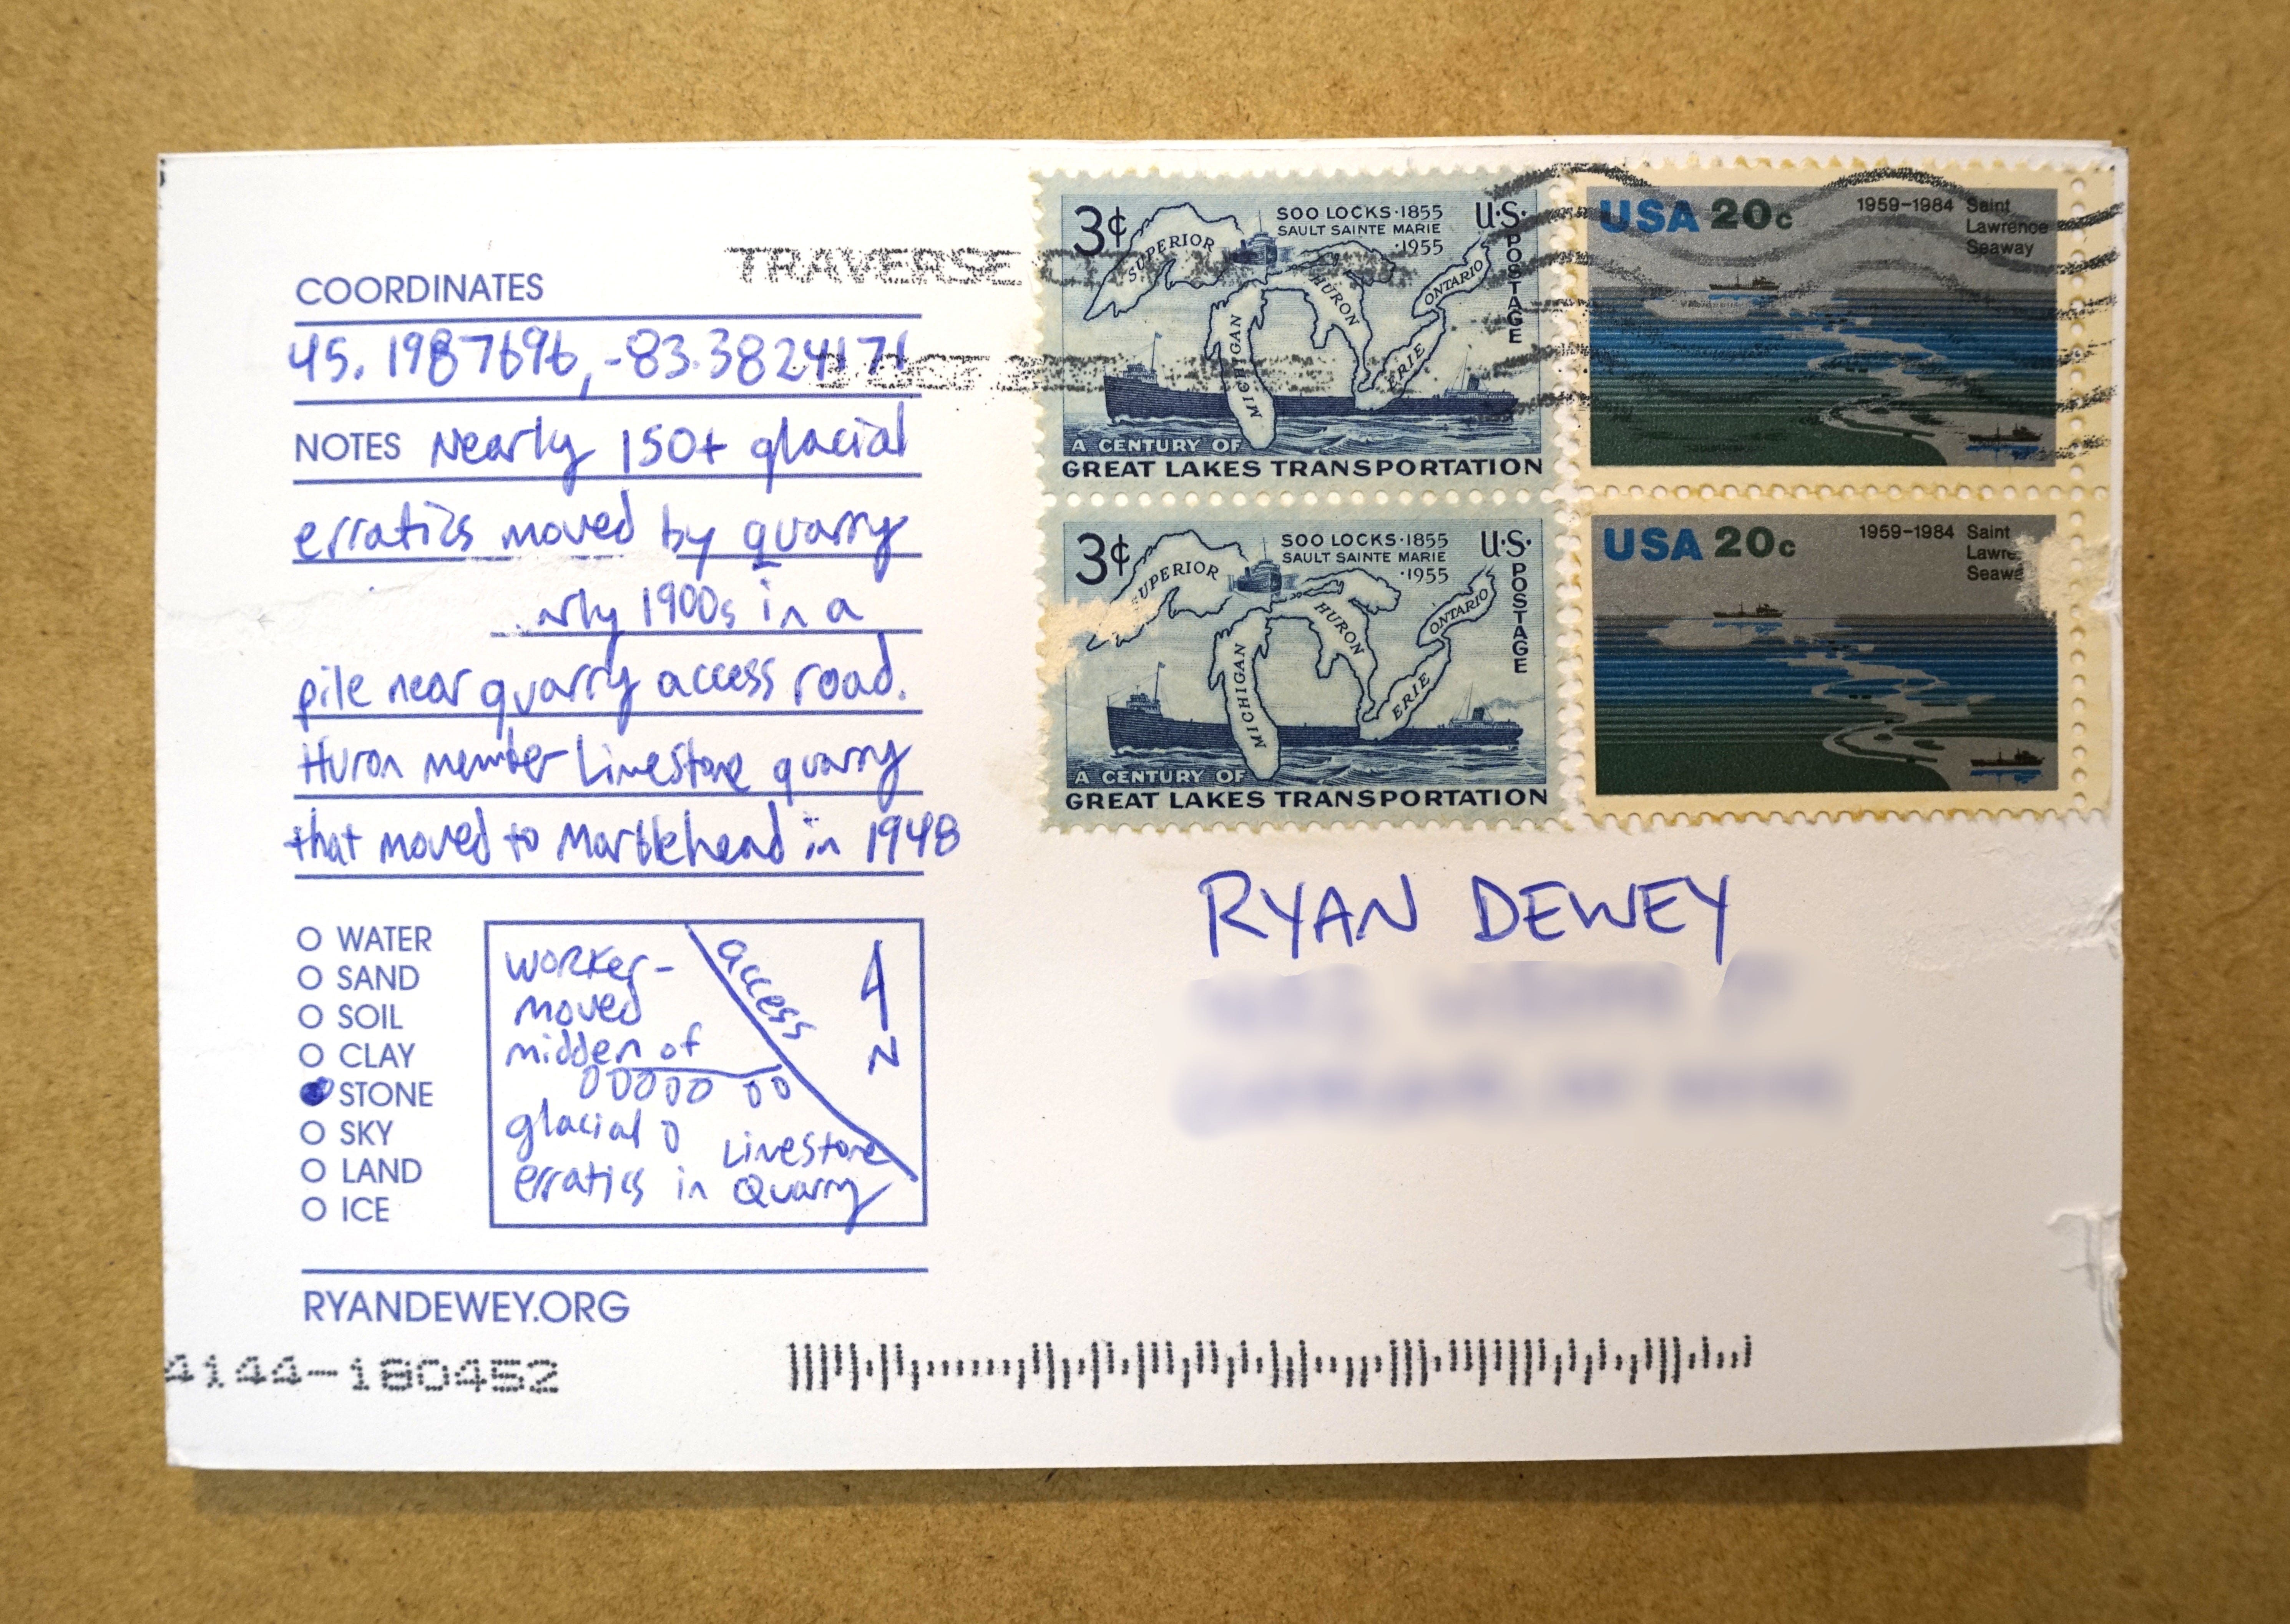 COORDINATES
45.1987696,-83.3824171
NOTES Nearly 150+ glacial
erratics moved by quarry
1900s in a
pile near quarry access road.
Huron member Limestone quarry
that moved to Marblehead in 1948
WATER
SAND
SOIL
CLAY
STONE
SKY
LAND
ICE
worker-
moved
midden of
glacial
erratics in
Limestone
Quarry
access
N
RYANDEWEY.ORG
4144-180452
TRAVERSE
3¢
SOO LOCKS·1855
SAULT SAINTE MARIE
·1955
U.S. POSTAGE
SUPERIOR
MICHIGAN
HURON
ERIE
ONTARIO
A CENTURY OF
GREAT LAKES TRANSPORTATION
USA 20c
1959-1984 Saint
Lawrence
Seaway
3¢
SOO LOCKS·1855
SAULT SAINTE MARIE
·1955
U.S. POSTAGE
SUPERIOR
MICHIGAN
HURON
ERIE
ONTARIO
A CENTURY OF
GREAT LAKES TRANSPORTATION
USA 20c
1959-1984 Saint
RYAN DEWEY